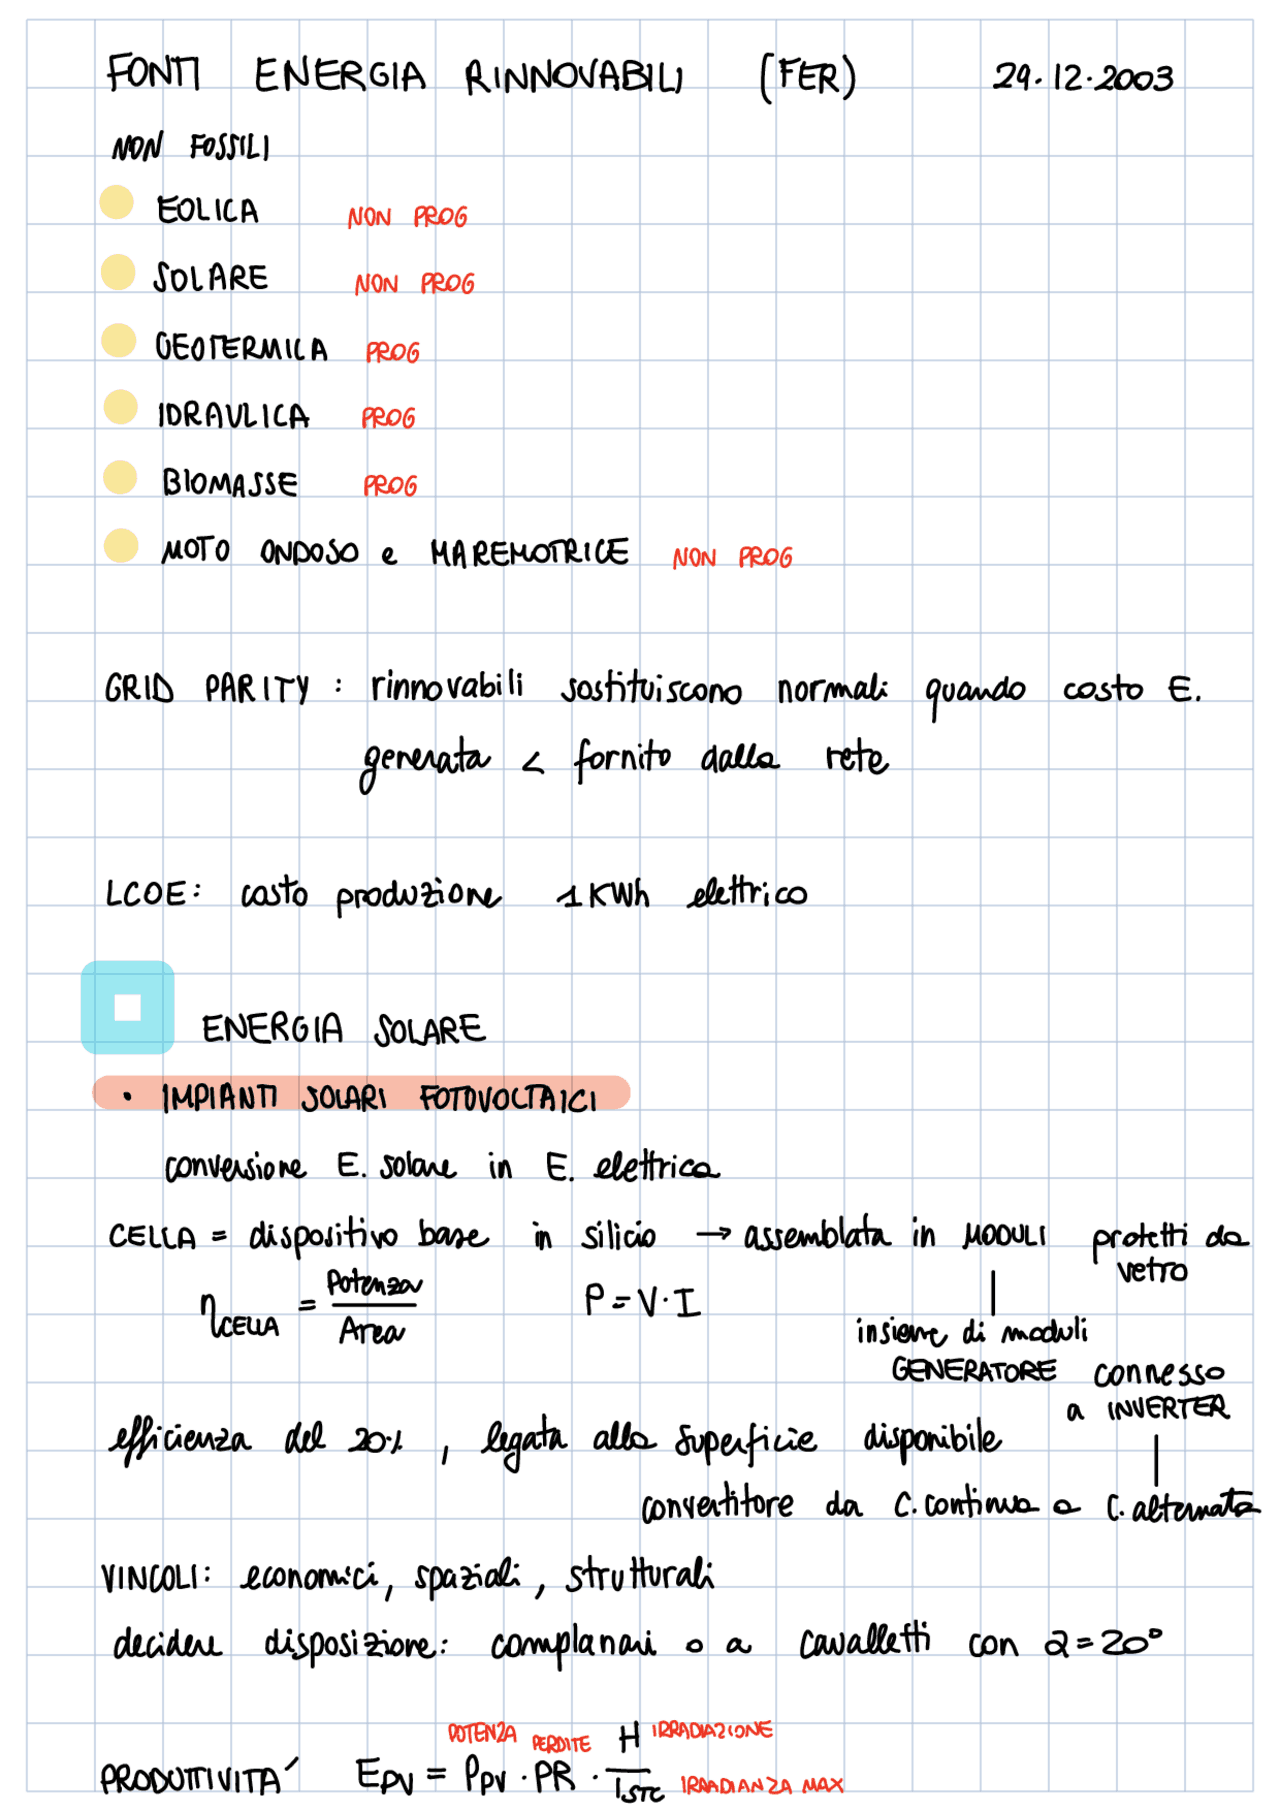 FONTI ENERGIA RINNOVABILI (FER) 29.12.2003
NON FOSSILI
EOLICA NON PROG
SOLARE NON PROG
GEOTERMICA PROG
IDRAULICA PROG
BIOMASSE PROG
MOTO ONDOSO e MAREMOTRICE NON PROG
GRID PARITY : rinnovabili sostituiscono normali quando costo E.
generata < fornito dalla rete
LCOE: costo produzione 1 KWh elettrico
ENERGIA SOLARE
• IMPIANTI SOLARI FOTOVOLTAICI
conversione E. solare in E. elettrica
CELLA = dispositivo base in silicio → assemblata in MODULI protetti da
vetro
η_CELLA = Potenza / Area P = V · I
insieme di moduli
GENERATORE connesso
a INVERTER
efficienza del 20% , legata alla superficie disponibile
convertitore da C. continua a C. alternata
VINCOLI: economici, spaziali, strutturali
decidere disposizione: complanari o a cavalletti con α = 20°
POTENZA PERDITE H IRRADIAZIONE
PRODUTTIVITA' E_PV = P_PV · PR · H / I_STC IRRADIANZA MAX